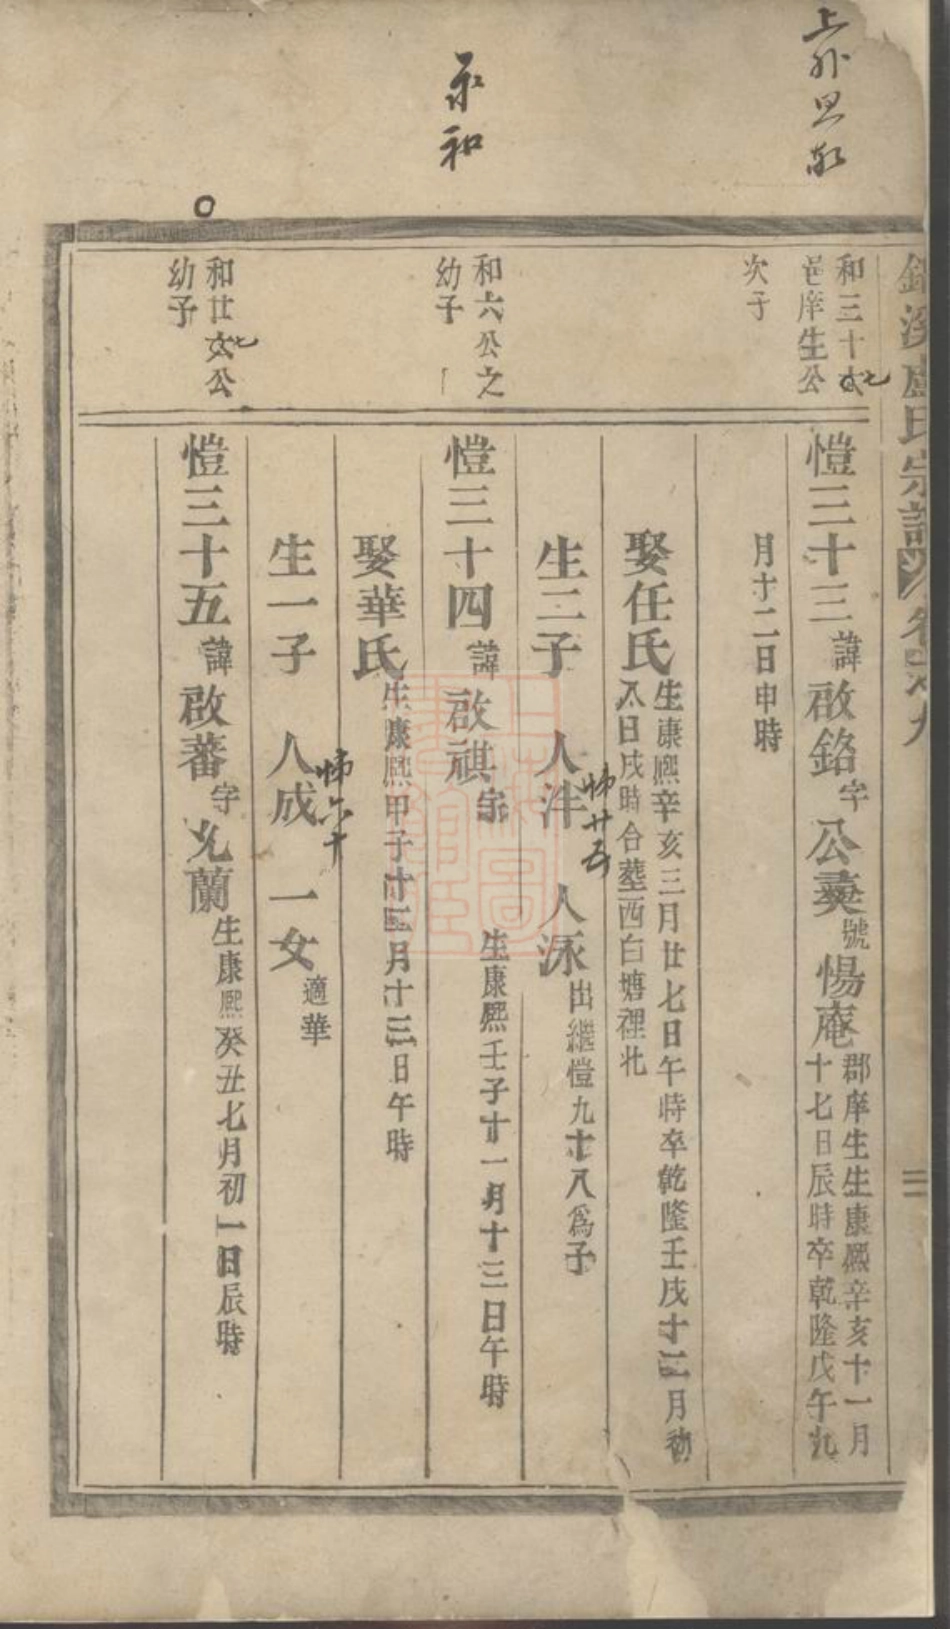 永和
溪盧氏宗譜
和三十七
邑庠生公
次子
愷三十三 諱 啟銘 字 公奭 號 惕庵 郡庠生生康熙辛亥十一月
十七日辰時卒乾隆戊午九
月十二日申時
娶任氏 生康熙辛亥三月廿七日午時卒乾隆壬戌十二月初
八日戌時合塟西白塘裡北
生二子 人泮 人泳 出繼愷九十八為子
和六公之
幼子
愷三十四 諱 啟祺 字 生康熙壬子十一月十三日午時
娶華氏 生康熙甲子十二月十三日午時
生一子 人成 一女 適華
和廿七公
幼子
愷三十五 諱 啟蕃 字 允蘭 生康熙癸丑七月初一日辰時